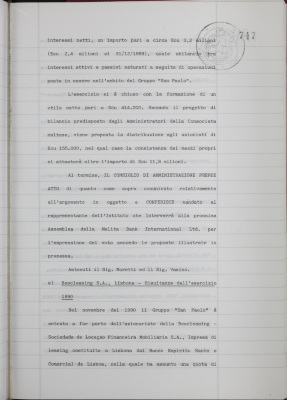 747
interessi netti, un importo pari a circa Ecu 3,2 milioni
(Ecu 2,4 milioni al 31/12/1989), quale sbilancio tra
interessi attivi e passivi maturati a seguito di operazioni
poste in essere nell'ambito del Gruppo "San Paolo".
L'esercizio si è chiuso con la formazione di un
utile netto pari a Ecu 414.000. Secondo il progetto di
bilancio predisposto dagli Amministratori della Consociata
maltese, viene proposta la distribuzione agli azionisti di
Ecu 155.000, nel qual caso la consistenza dei mezzi propri
si attesterà oltre l'importo di Ecu 11,8 milioni.
Al termine, IL CONSIGLIO DI AMMINISTRAZIONE PRENDE
ATTO di quanto come sopra comunicato relativamente
all'argomento in oggetto e CONFERISCE mandato al
rappresentante dell'Istituto che interverrà alla prossima
Assemblea della Melita Bank International Ltd. per
l'espressione del voto secondo le proposte illustrate in
premessa.
Astenuti il Sig. Moretti ed il Sig. Vanino.
Bearleasing S.A., Lisbona - Risultanze dell'esercizio
1990
Nel novembre del 1990 il Gruppo "San Paolo" è
entrato a far parte dell'azionariato della
Sociedade de Locaçao Financeira Mobiliária S.A., impresa di
leasing costituita a Lisbona dal Banco Espirito Santo e
Comercial de Lisboa, nella quale ha assunto una quota di